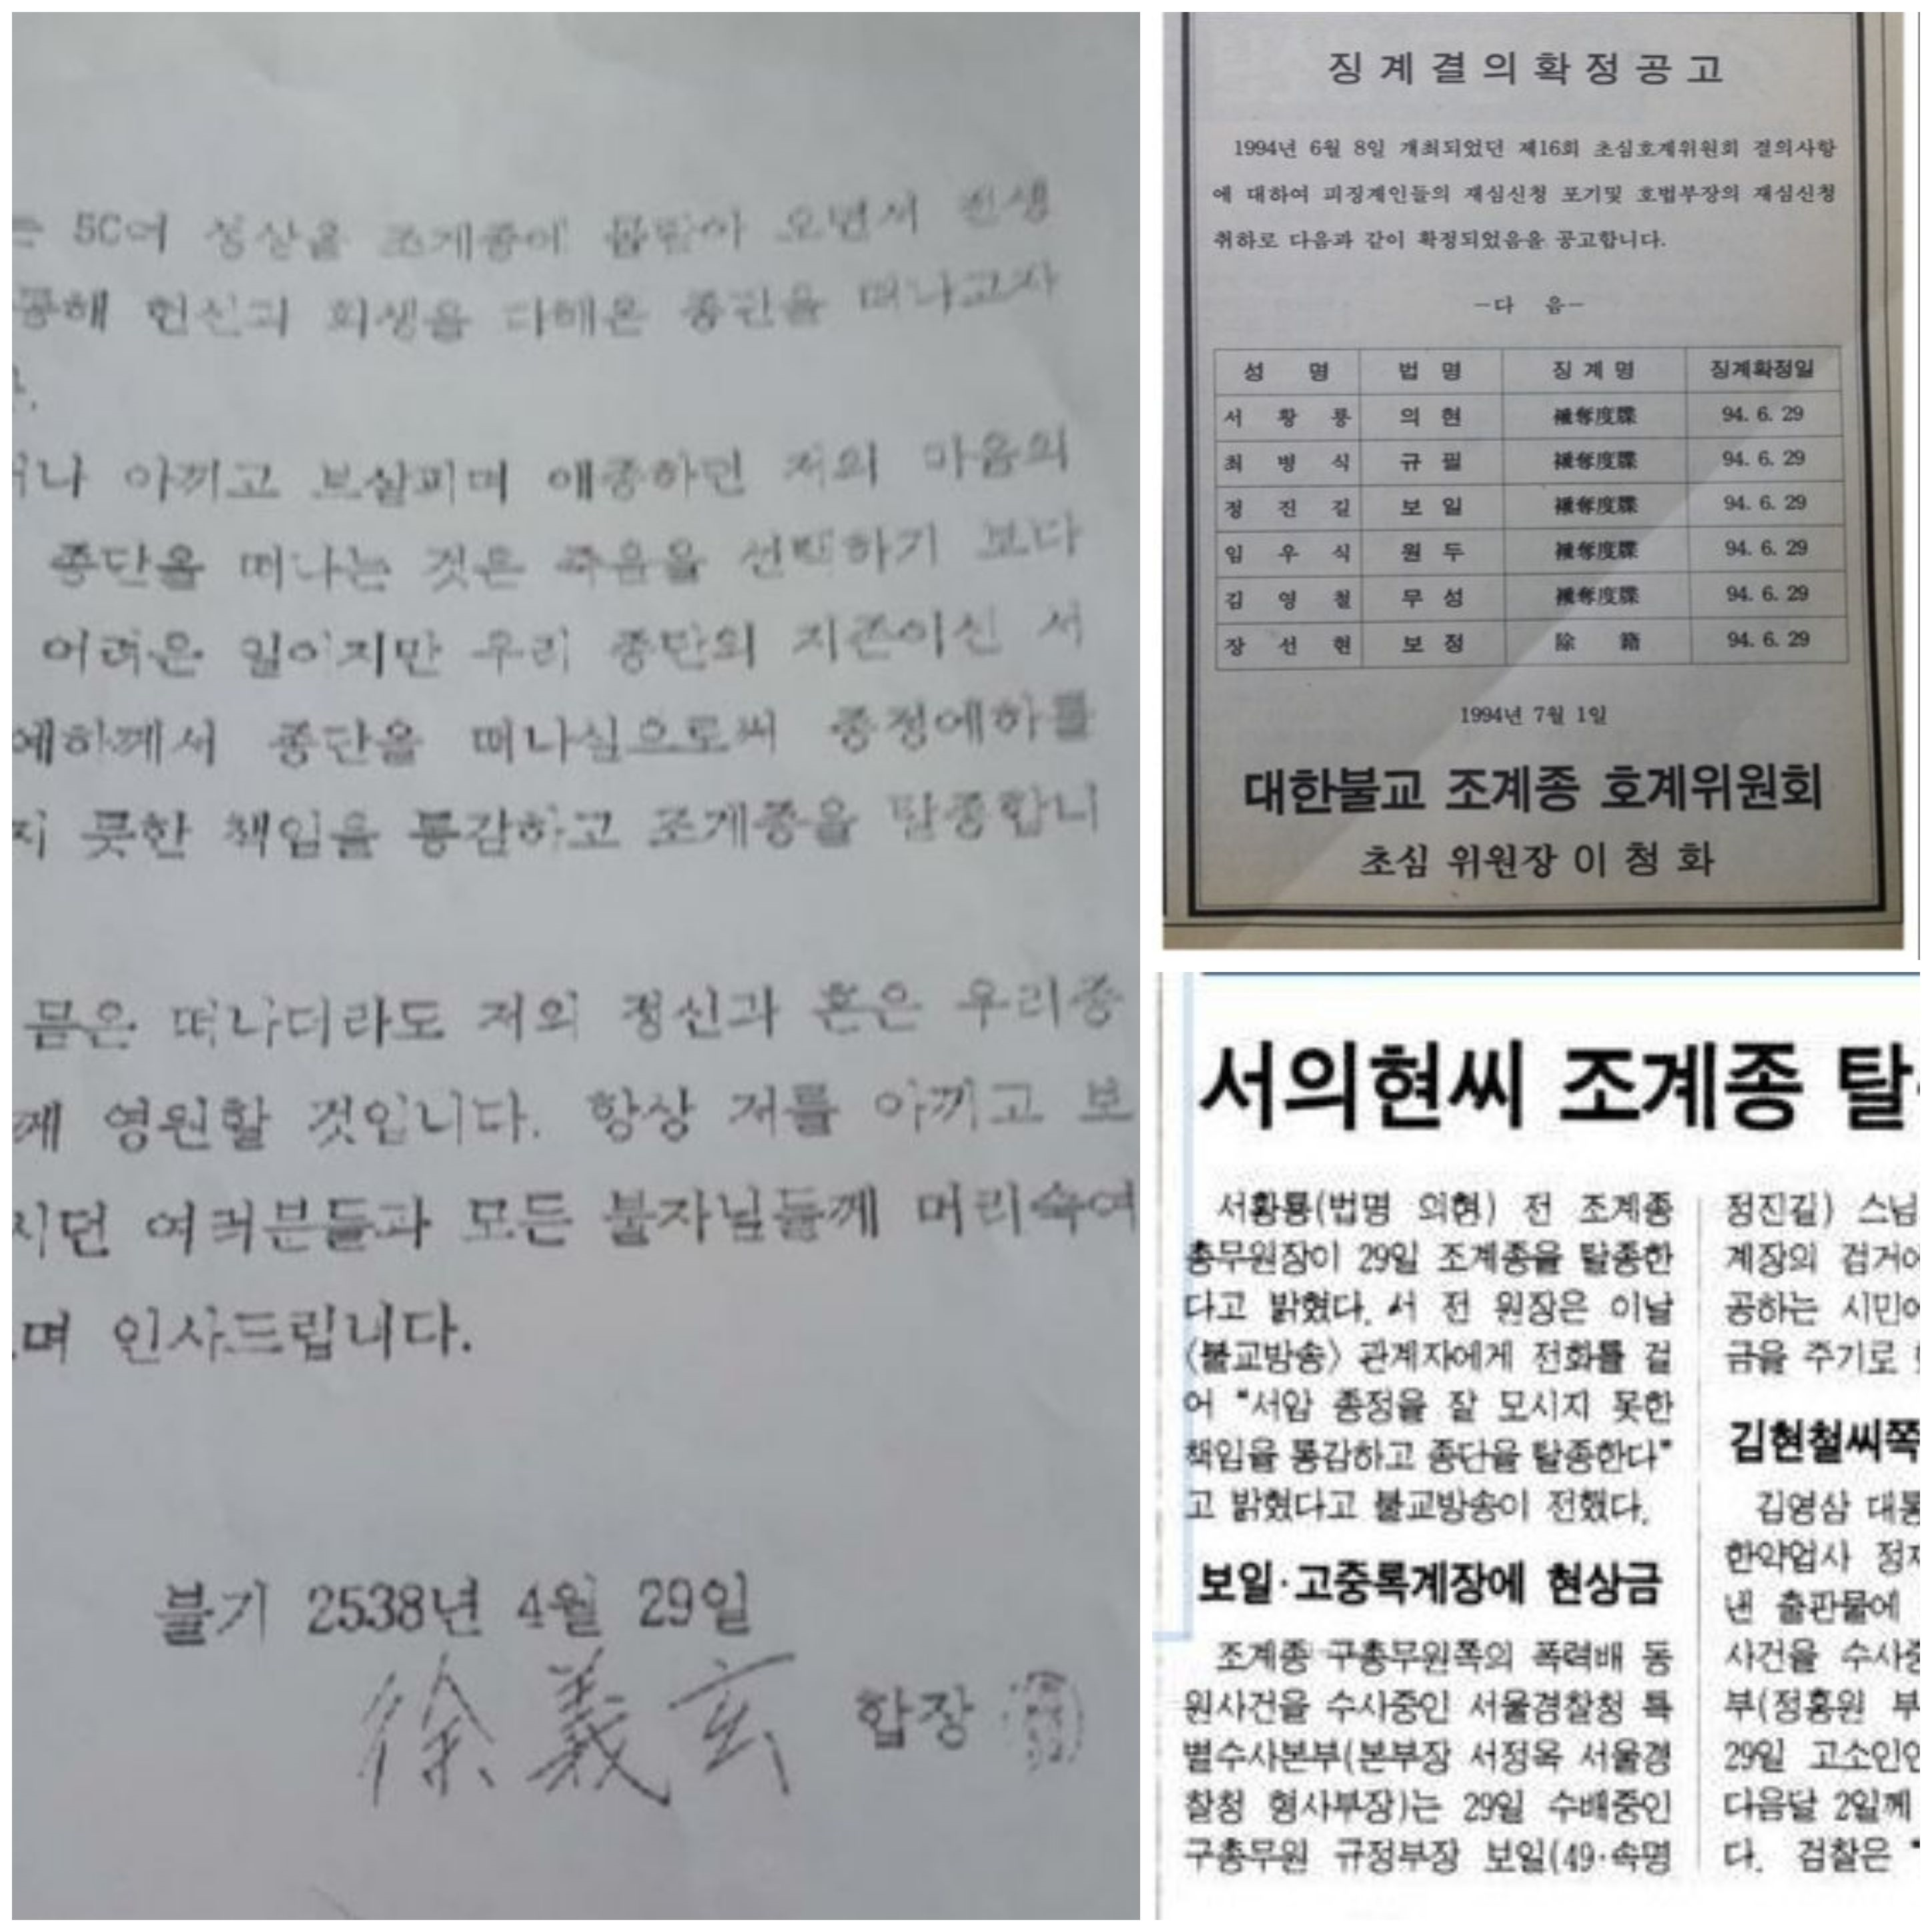 는 50여 성상을 조계종에 몸담아 오면서 전생
공해 헌신과 희생을 다해온 종단을 떠나고자
다.
거나 아끼고 보살피며 애종하던 저의 마음의
종단을 떠나는 것은 죽음을 선택하기 보다
어려운 일이지만 우리 종단의 지존이신 서
예하께서 종단을 떠나심으로써 종정예하를
지 못한 책임을 통감하고 조계종을 탈종합니
몸은 떠나더라도 저의 정신과 혼은 우리종
께 영원할 것입니다. 항상 저를 아끼고 보
시던 여러분들과 모든 불자님들께 머리숙여
며 인사드립니다.
불기 2538년 4월 29일
徐義玄 합장
징계결의확정공고
1994년 6월 8일 개최되었던 제16회 초심호계위원회 결의사항
에 대하여 피징계인들의 재심신청 포기및 호법부장의 재심신청
취하로 다음과 같이 확정되었음을 공고합니다.
-다 음-
성 명 법 명 징 계 명 징계확정일
서 황 룡 의 현 褫奪度牒 94. 6. 29
최 병 식 규 필 褫奪度牒 94. 6. 29
정 진 길 보 일 褫奪度牒 94. 6. 29
임 우 식 원 두 褫奪度牒 94. 6. 29
김 영 철 무 성 褫奪度牒 94. 6. 29
장 선 현 보 정 除 籍 94. 6. 29
1994년 7월 1일
대한불교 조계종 호계위원회
초심 위원장 이 청 화
서의현씨 조계종 탈
서황룡(법명 의현) 전 조계종
총무원장이 29일 조계종을 탈종한
다고 밝혔다. 서 전 원장은 이날
〈불교방송〉 관계자에게 전화를 걸
어 "서암 종정을 잘 모시지 못한
책임을 통감하고 종단을 탈종한다"
고 밝혔다고 불교방송이 전했다.
보일·고중록계장에 현상금
조계종 구총무원쪽의 폭력배 동
원사건을 수사중인 서울경찰청 특
별수사본부(본부장 서정옥 서울경
찰청 형사부장)는 29일 수배중인
구총무원 규정부장 보일(49·속명
정진길) 스님
계장의 검거에
공하는 시민에
금을 주기로
김현철씨쪽
김영삼 대통
한약업사 정재
낸 출판물에
사건을 수사중
부(정홍원 부
29일 고소인인
다음달 2일께
다. 검찰은 "